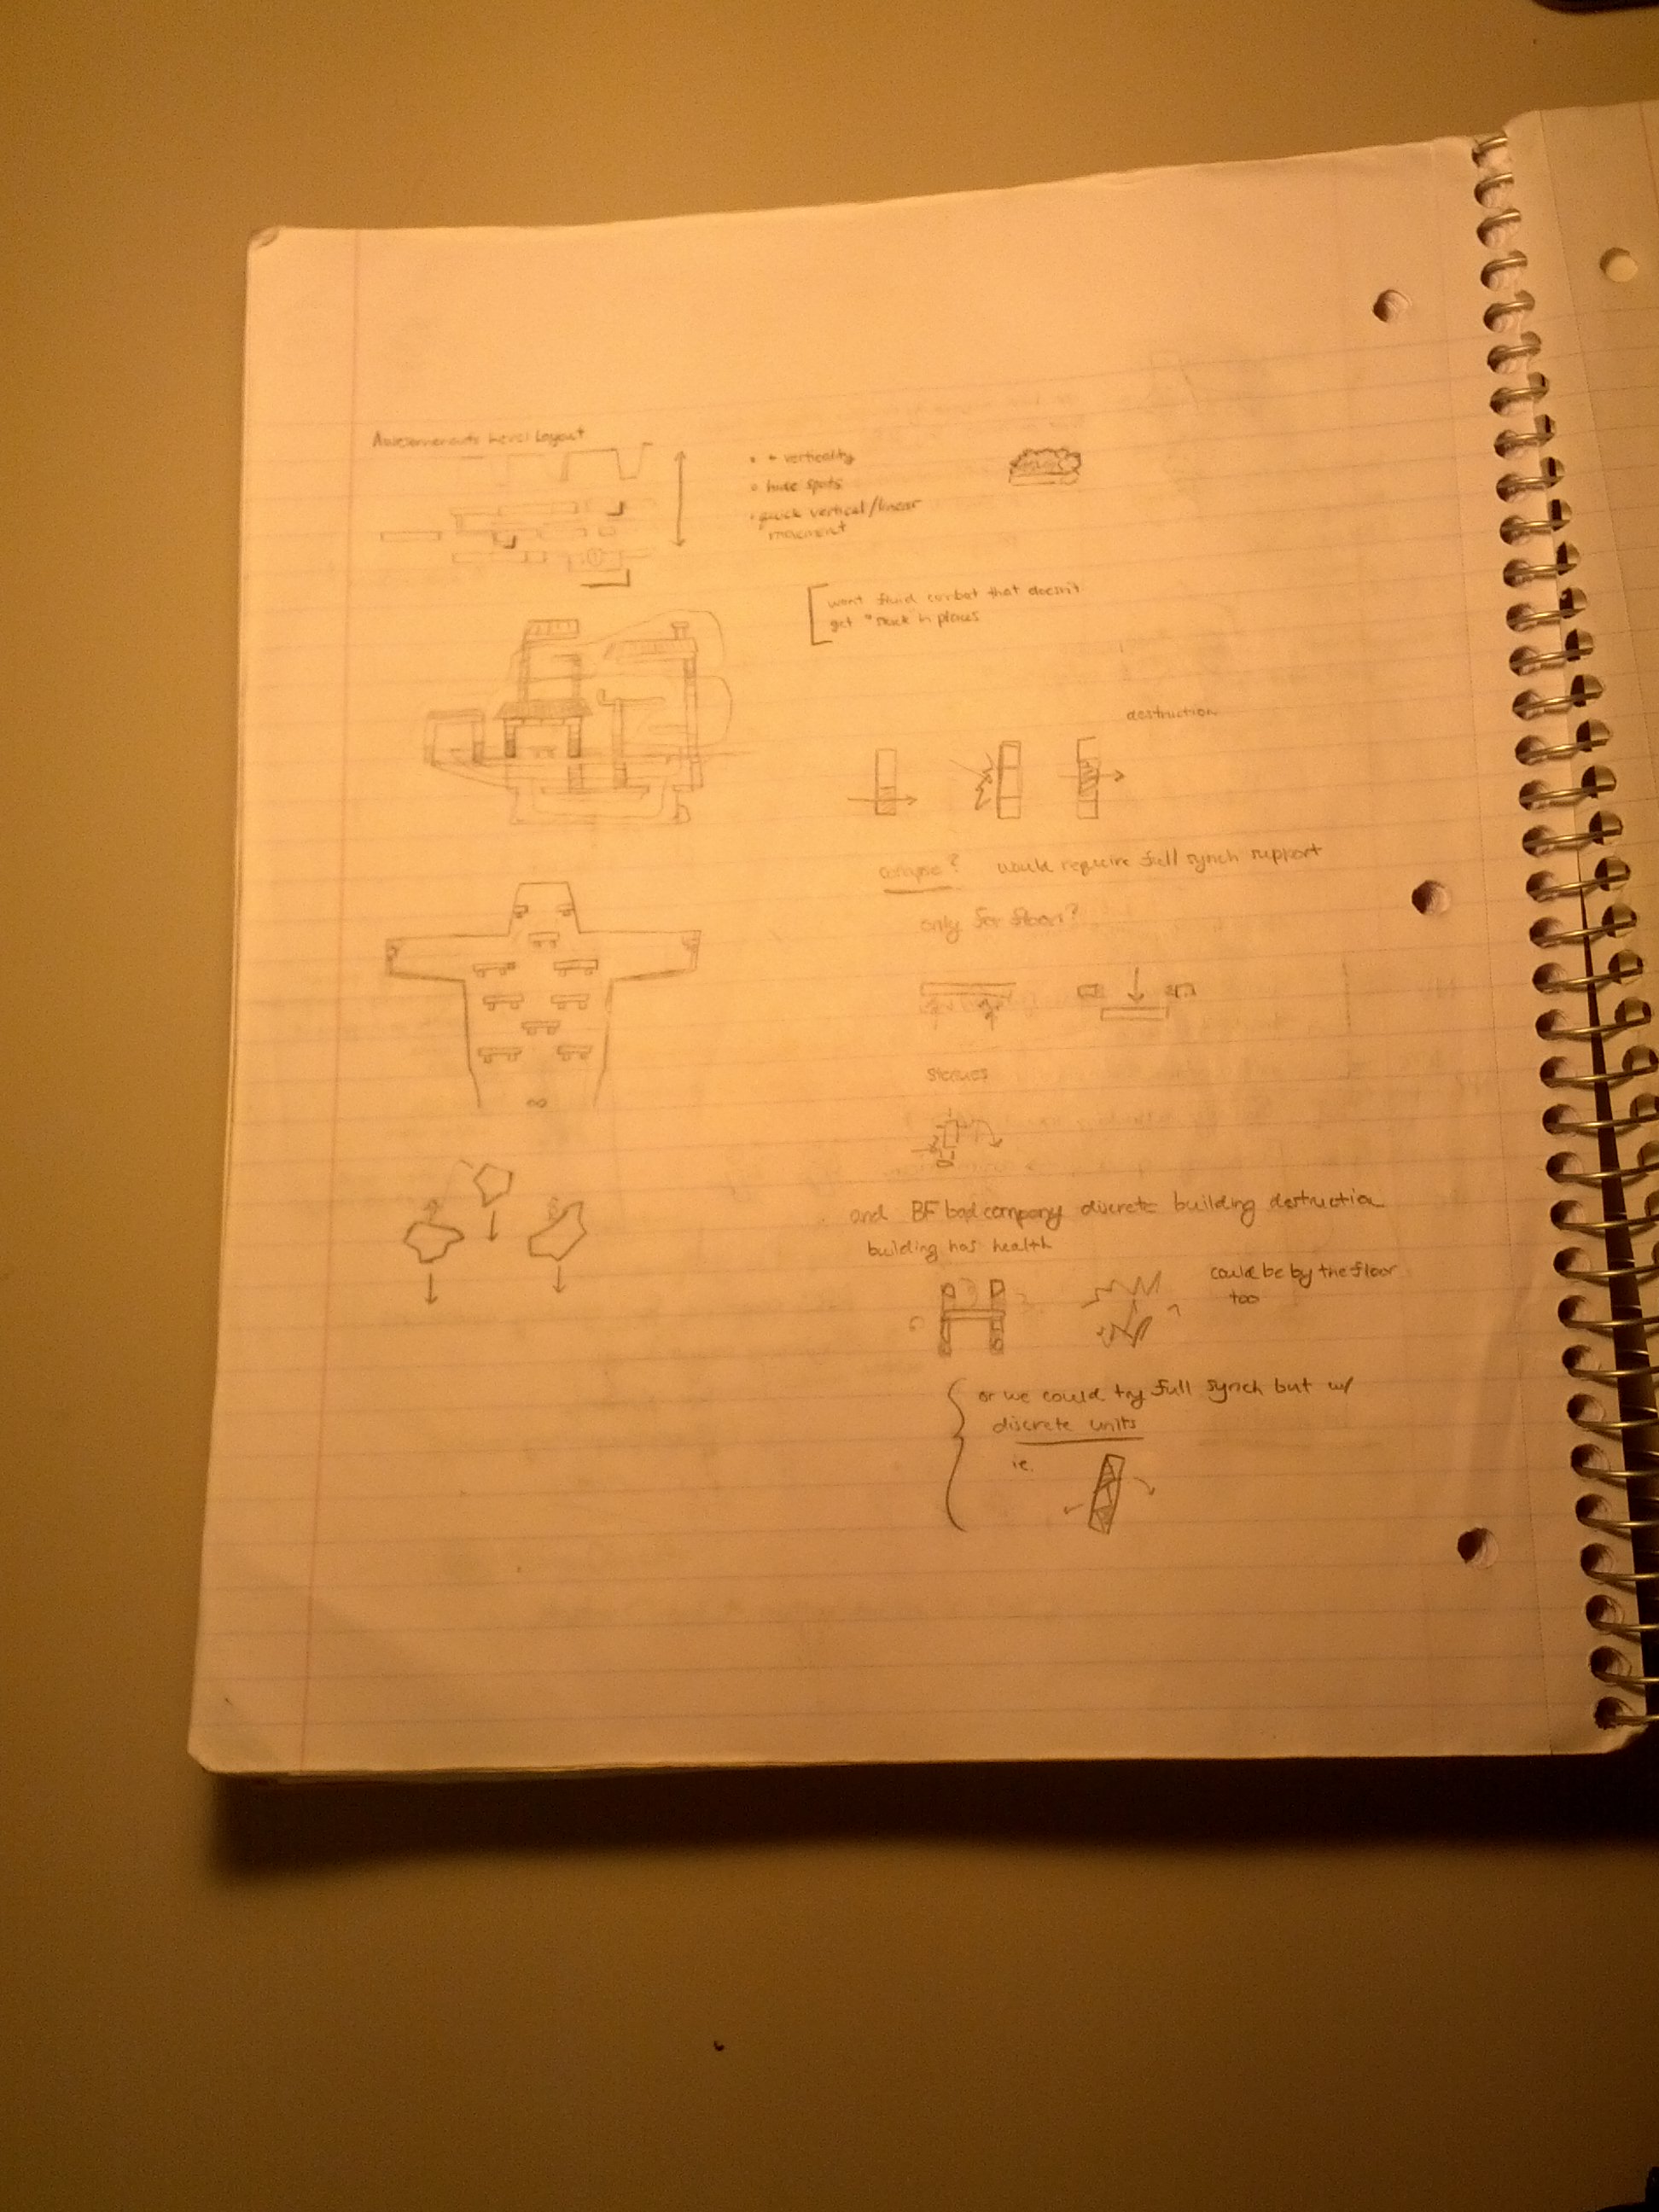 Awesomenauts Level Layout
• + verticality
• hide spots
• quick vertical/linear
movement
want fluid combat that doesn't
get "stuck in places
destruction
collapse? would require full synch support
only for floor?
statues
and BF bad company discrete building destruction
building has health
could be by the floor
too
or we could try full synch but w/
discrete units
ie.